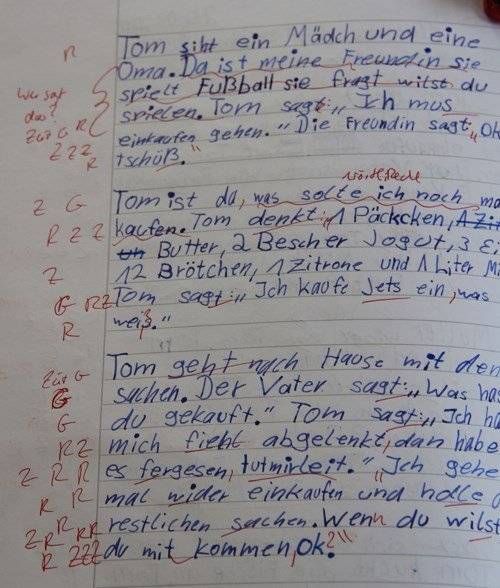 R Tom siht ein Mädch und eine
Oma. Da ist meine Freundin sie
Wer sagt spielt Fußball sie fragt wilst du
das? spielen. Tom sagt: „Ich mus
Zät G R einkaufen gehen." Die Freundin sagt „Ok
Z Z Z R tschüß."
wörtl. Rede
Z G Tom ist da, was solte ich noch ma
R Z Z kaufen. Tom denkt: „1 Päckchen,
Butter, 2 Bescher Jogut, 3 E
Z 12 Brötchen, 1 Zitrone und 1 Liter Mi
G R Z Tom sagt: „Ich kaufe Jets ein, was
R weiß."
Tom geht nach Hause mit den
Zät G sachen. Der Vater sagt: „Was has
G du gekauft." Tom sagt: „Ich ha
G mich fieht abgelenkt, dan habe
R Z es fergesen, tutmirleit." „Ich gehe
Z R R mal wider einkaufen und holle d
R R restlichen sachen. Wenn du wilst
Z R R R R du mit kommen, Ok?"
R Z Z Z